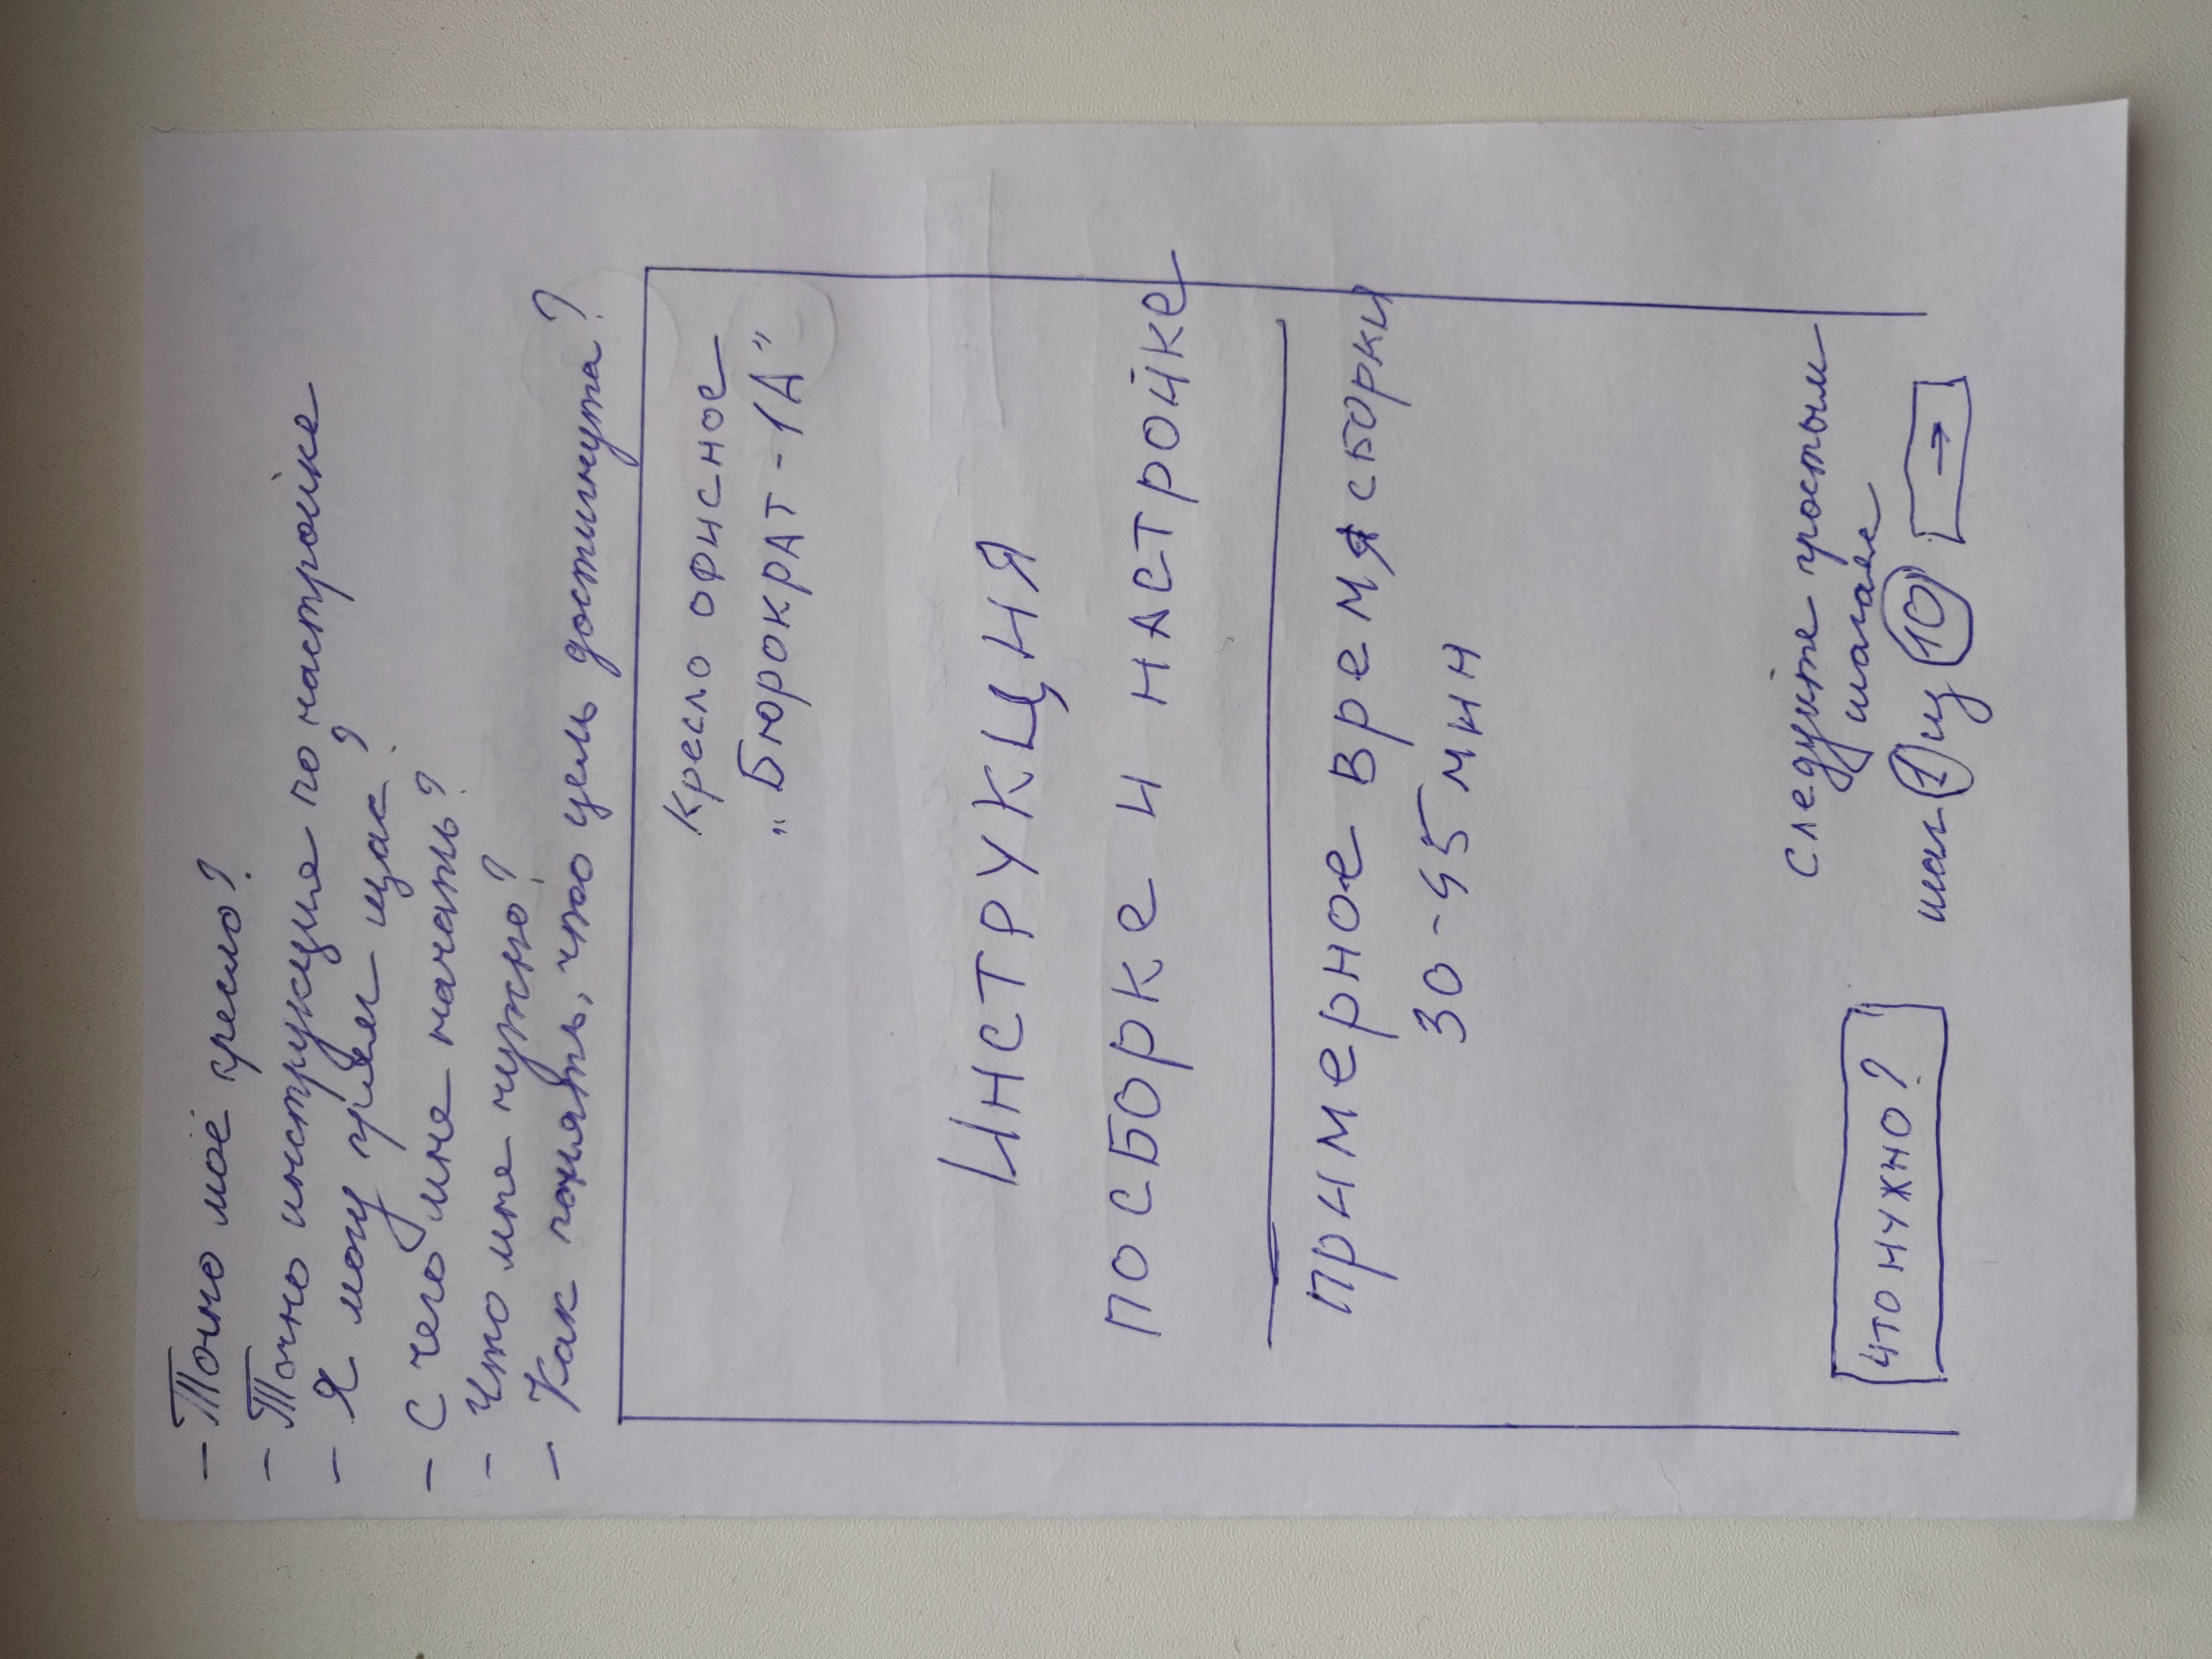 - Точно моё кресло?
- Точно инструкция по настройке
- Я могу прям щас?
- С чего мне начать?
- Что мне нужно?
- Как понять, что цель достигнута?
Кресло офисное
„Бюрократ-1А”
Инструкция
по сборке и настройке
примерное время сборки
30-45 мин
Следуйте простым
шагам
что нужно?
шаг 1 из 10 →